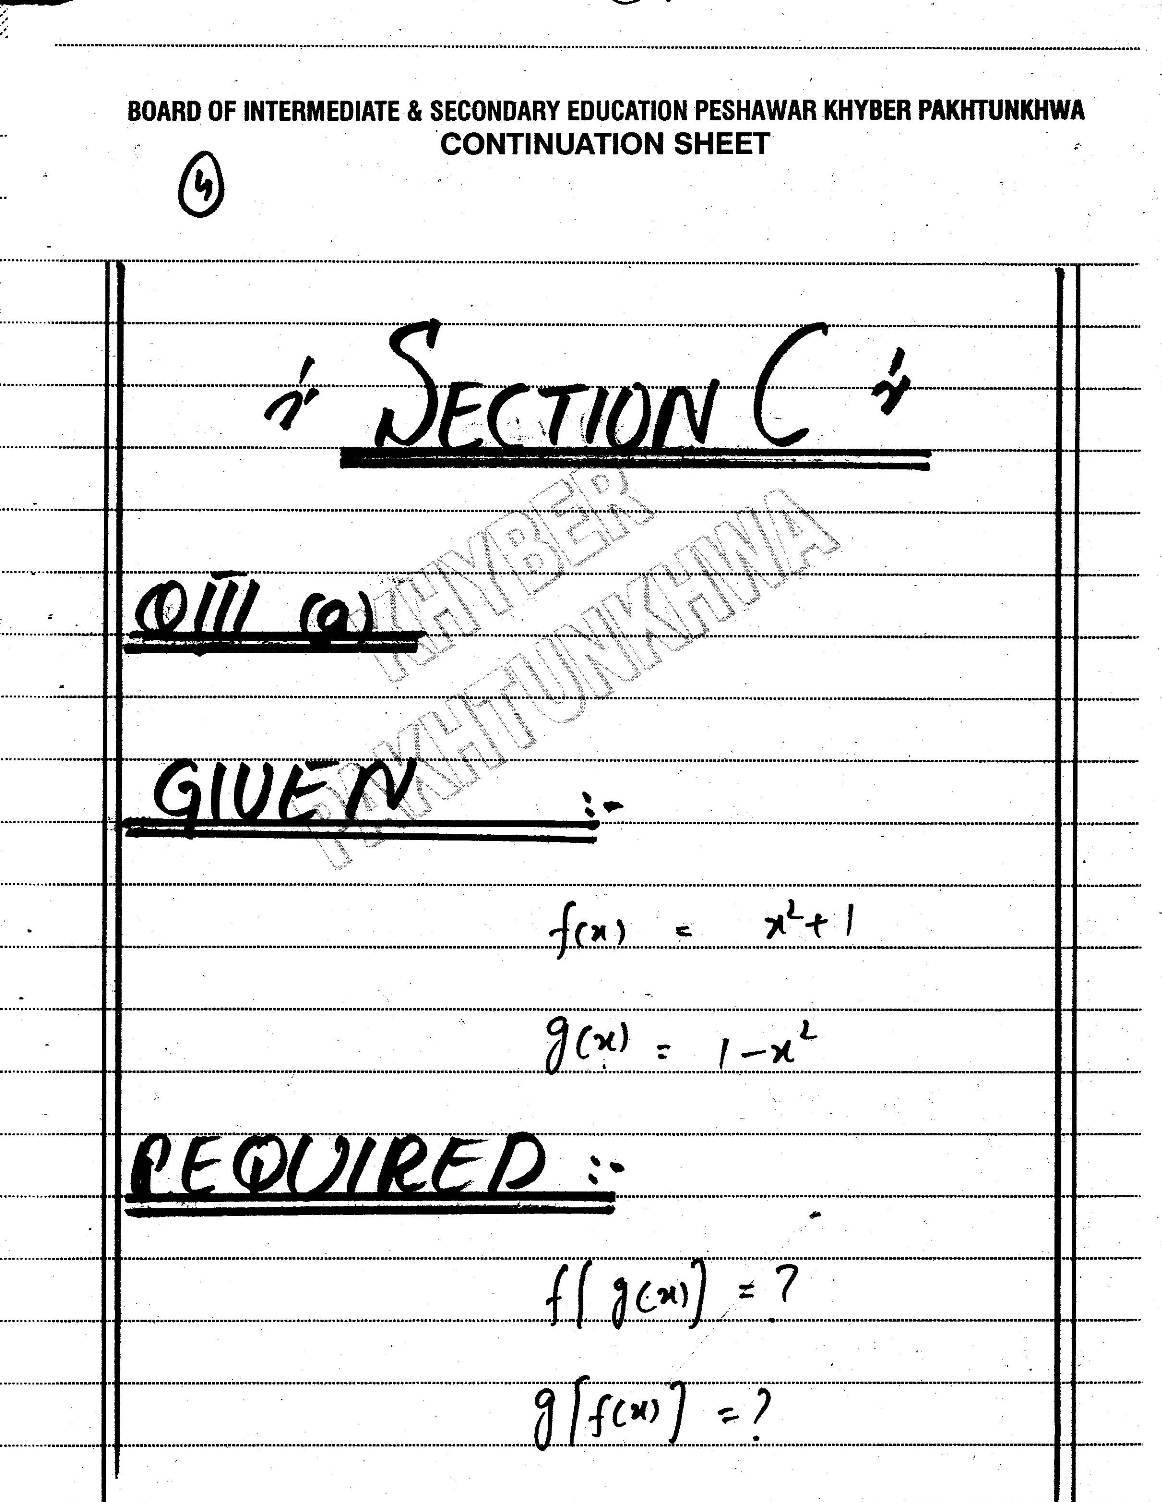 BOARD OF INTERMEDIATE & SECONDARY EDUCATION PESHAWAR KHYBER PAKHTUNKHWA
CONTINUATION SHEET
4
SECTION C
KHYBER
PAKHTUNKHWA
QIII (a)
GIVEN :-
f(x) = x²+1
g(x) = 1-x²
REQUIRED :-
f[g(x)] = ?
g[f(x)] = ?